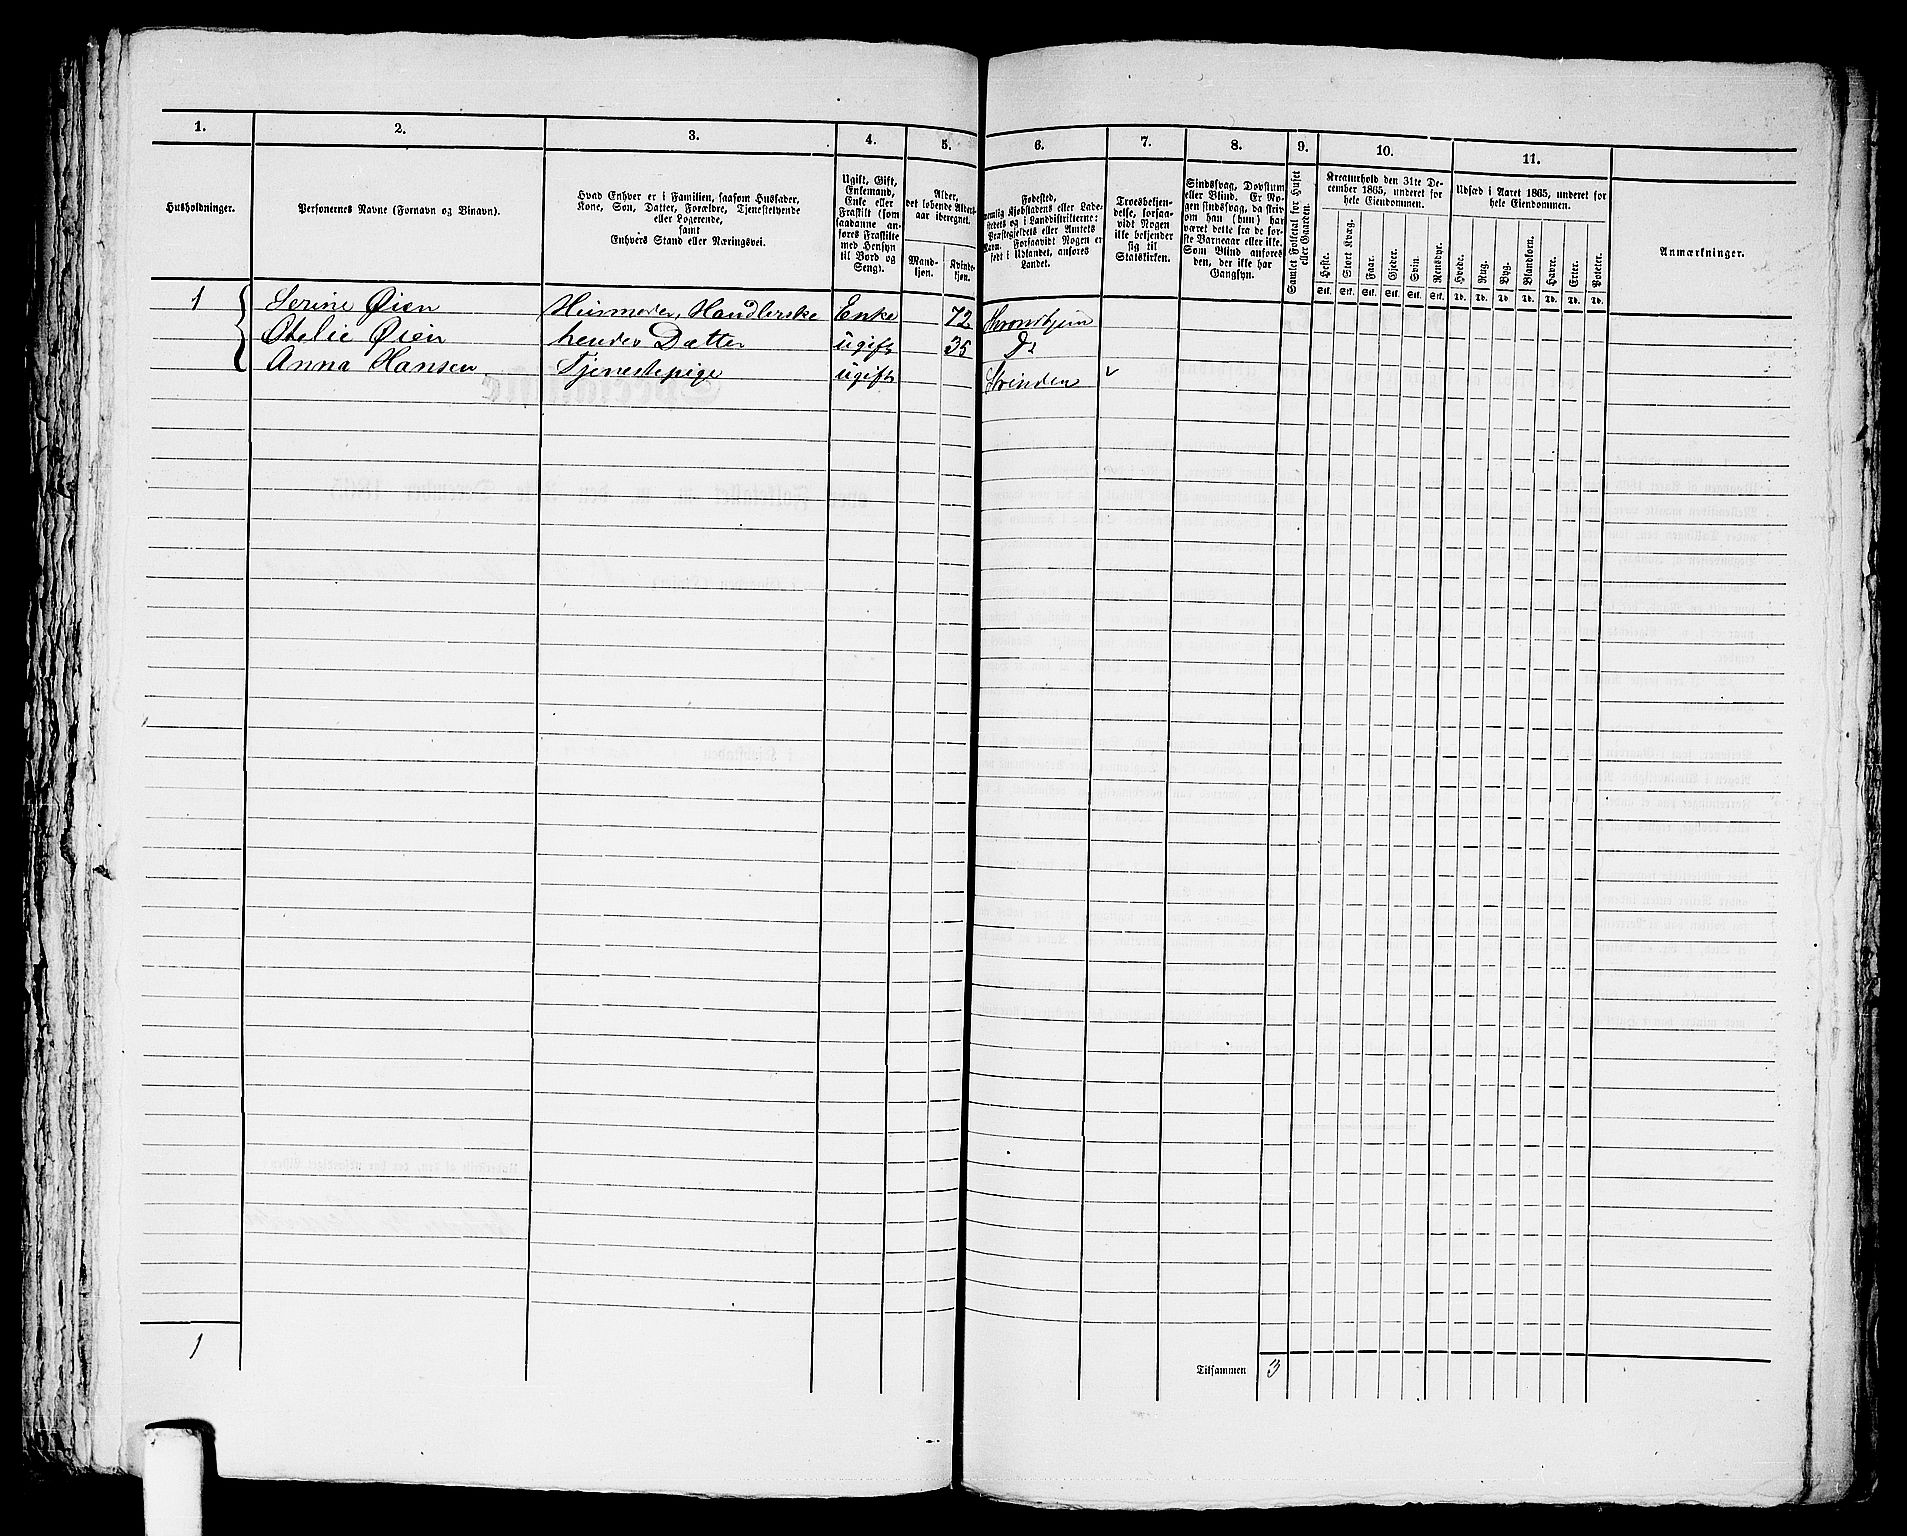 1. 2. 3. 4. 5. 6. 7. 8. 9. 10. 11.
Husholdninger.
Personernes Navne (Fornavn og Binavn).
Hvad Enhver er i Familien, saasom Husfader,
Kone, Søn, Datter, Forældre, Tjenestetyende
eller Logerende,
samt
Enhvers Stand eller Næringsvei.
Ugift, Gift,
Enkemand,
Enke eller
Fraskilt (som
saadanne an-
føres Fraskilte
med Hensyn
til Bord og
Seng).
Alder,
det løbende Alders-
aar iberegnet.
Mand-
kjøn.
Kvinde-
kjøn.
Fødested,
nemlig Kjøbstadens eller Lade-
stedets og i Landdistrikterne:
Præstegjeldets eller Amtets
Navn. Forsaavidt Nogen er
født i Udlandet, anføres
Landet.
Troesbekjen-
delse, forsaa-
vidt Nogen
ikke bekjender
sig til
Statskirken.
Sindssvag, Døvstum
eller Blind. Er No-
gen sindssvag, da skriv
om han (hun) har
været dette fra de før-
ste Barneaar eller ikke.
Som Blind anføres
den, der ikke har
Gangsyn.
Samlet Folketal for Huset
eller Gaarden.
Kreaturhold den 31te De-
cember 1865, underet for
hele Eiendommen.
Heste. Stort Kvæg. Faar. Gjeder. Svin. Rensdyr.
Stk. Stk. Stk. Stk. Stk. Stk.
Udsæd i Aaret 1865, underet for
hele Eiendommen.
Hvede. Rug. Byg. Blandkorn. Havre. Erter. Poteter.
Td. Td. Td. Td. Td. Td. Td.
Anmærkninger.
1 Serine Øien Husmoder, Handlerske Enke 72 Trondhjem
Otelie Øien hendes Datter ugift 35 Do
Anna Hansen Tjenestepige ugift Strinden
1
Tilsammen 3